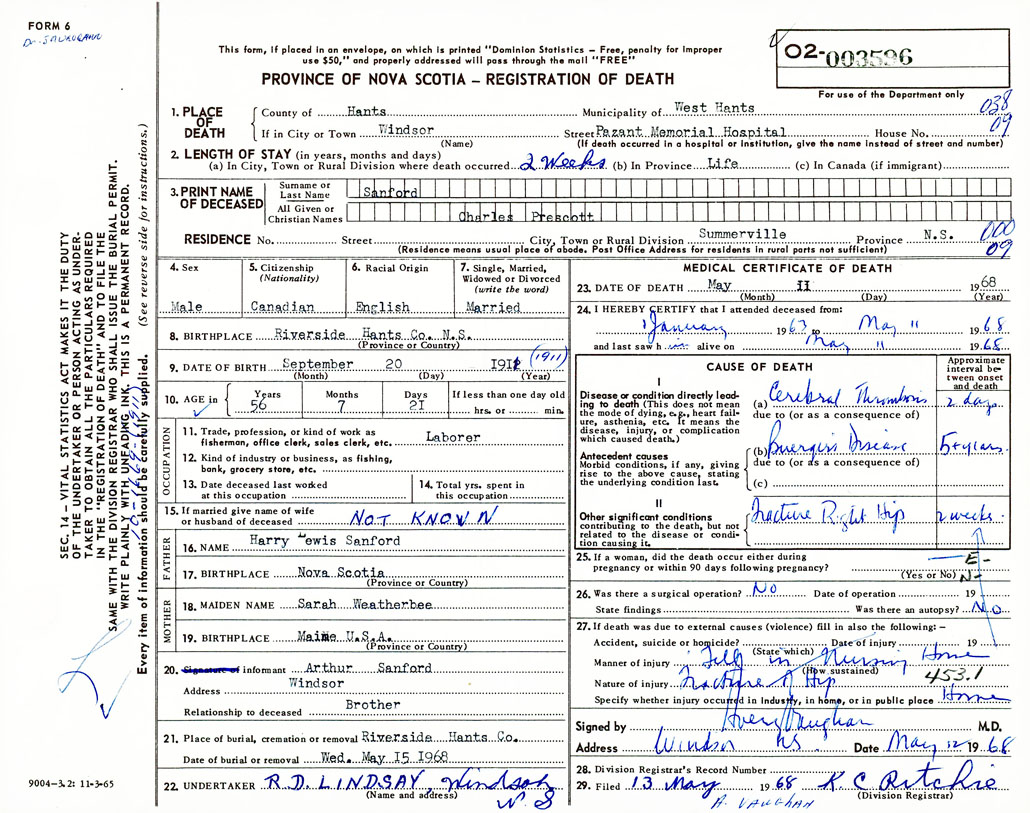 FORM 6
This form, if placed in an envelope, on which is printed "Dominion Statistics – Free, penalty for improper
use $50," and properly addressed will pass through the mail "FREE"
PROVINCE OF NOVA SCOTIA – REGISTRATION OF DEATH
02-003596
For use of the Department only
038
09
1. PLACE OF DEATH
County of Hants Municipality of West Hants
If in City or Town Windsor Street Pazant Memorial Hospital House No.
(Name) (If death occurred in a hospital or institution, give the name instead of street and number)
2. LENGTH OF STAY (in years, months and days)
(a) In City, Town or Rural Division where death occurred 2 Weeks (b) In Province Life (c) In Canada (if immigrant)
3. PRINT NAME OF DECEASED
Surname or Last Name Sanford
All Given or Christian Names Charles Prescott
RESIDENCE No. Street City, Town or Rural Division Summerville Province N.S.
(Residence means usual place of abode. Post Office Address for residents in rural parts not sufficient)
000
09
4. Sex Male
5. Citizenship (Nationality) Canadian
6. Racial Origin English
7. Single, Married, Widowed or Divorced (write the word) Married
8. BIRTHPLACE Riverside Hants Co. N.S.
(Province or Country)
9. DATE OF BIRTH September 20 1912 (1911)
(Month) (Day) (Year)
10. AGE in Years 56 Months 7 Days 21 If less than one day old hrs. or min.
OCCUPATION
11. Trade, profession, or kind of work as fisherman, office clerk, sales clerk, etc. Laborer
12. Kind of industry or business, as fishing, bank, grocery store, etc.
13. Date deceased last worked at this occupation
14. Total yrs. spent in this occupation
15. If married give name of wife or husband of deceased NOT KNOWN
FATHER
16. NAME Harry Lewis Sanford
17. BIRTHPLACE Nova Scotia
(Province or Country)
MOTHER
18. MAIDEN NAME Sarah Weatherbee
19. BIRTHPLACE Maine U.S.A.
(Province or Country)
20. Signature of informant Arthur Sanford
Address Windsor
Relationship to deceased Brother
21. Place of burial, cremation or removal Riverside Hants Co.
Date of burial or removal Wed. May 15 1968
22. UNDERTAKER R.D. LINDSAY, Windsor
(Name and address) N.S
MEDICAL CERTIFICATE OF DEATH
23. DATE OF DEATH May 11 1968
(Month) (Day) (Year)
24. I HEREBY CERTIFY that I attended deceased from:
January 1967 to May 11 1968
and last saw h im alive on May 11 1968
CAUSE OF DEATH
Approximate interval between onset and death
I
Disease or condition directly leading to death (This does not mean the mode of dying, e.g., heart failure, asthenia, etc. It means the disease, injury, or complication which caused death.)
(a) Cerebral Thrombosis 2 days
due to (or as a consequence of)
Antecedent causes
Morbid conditions, if any, giving rise to the above cause, stating the underlying condition last.
(b) Buergin's Disease 5+ years
due to (or as a consequence of)
(c)
II
Other significant conditions contributing to the death, but not related to the disease or condition causing it.
Fracture Right Hip 2 weeks
25. If a woman, did the death occur either during
pregnancy or within 90 days following pregnancy?
(Yes or No)
E-
N-
26. Was there a surgical operation? No Date of operation 19
State findings Was there an autopsy? NO
27. If death was due to external causes (violence) fill in also the following: –
Accident, suicide or homicide? Date of injury 19
(State which)
Manner of injury Fell in Nursing Home
(How sustained)
453.1
Nature of injury Fracture of Hip
Specify whether injury occurred in Industry, in home, or in public place Home
Signed by Avery Vaughan M.D.
Address Windsor NS Date May 12 1968
28. Division Registrar's Record Number
29. Filed 13 May 1968 K C Ritchie
(Division Registrar)
A. VAUGHAN
SEC. 14 – VITAL STATISTICS ACT MAKES IT THE DUTY
OF THE UNDERTAKER OR PERSON ACTING AS UNDER-
TAKER TO OBTAIN ALL THE PARTICULARS REQUIRED
IN THE "REGISTRATION OF DEATH" AND TO FILE THE
SAME WITH THE DIVISION REGISTRAR WHO SHALL ISSUE THE BURIAL PERMIT.
WRITE PLAINLY WITH UNFADING INK. THIS IS A PERMANENT RECORD.
Every item of information should be carefully supplied. (See reverse side for instructions.)
9004-3.2: 11-3-65